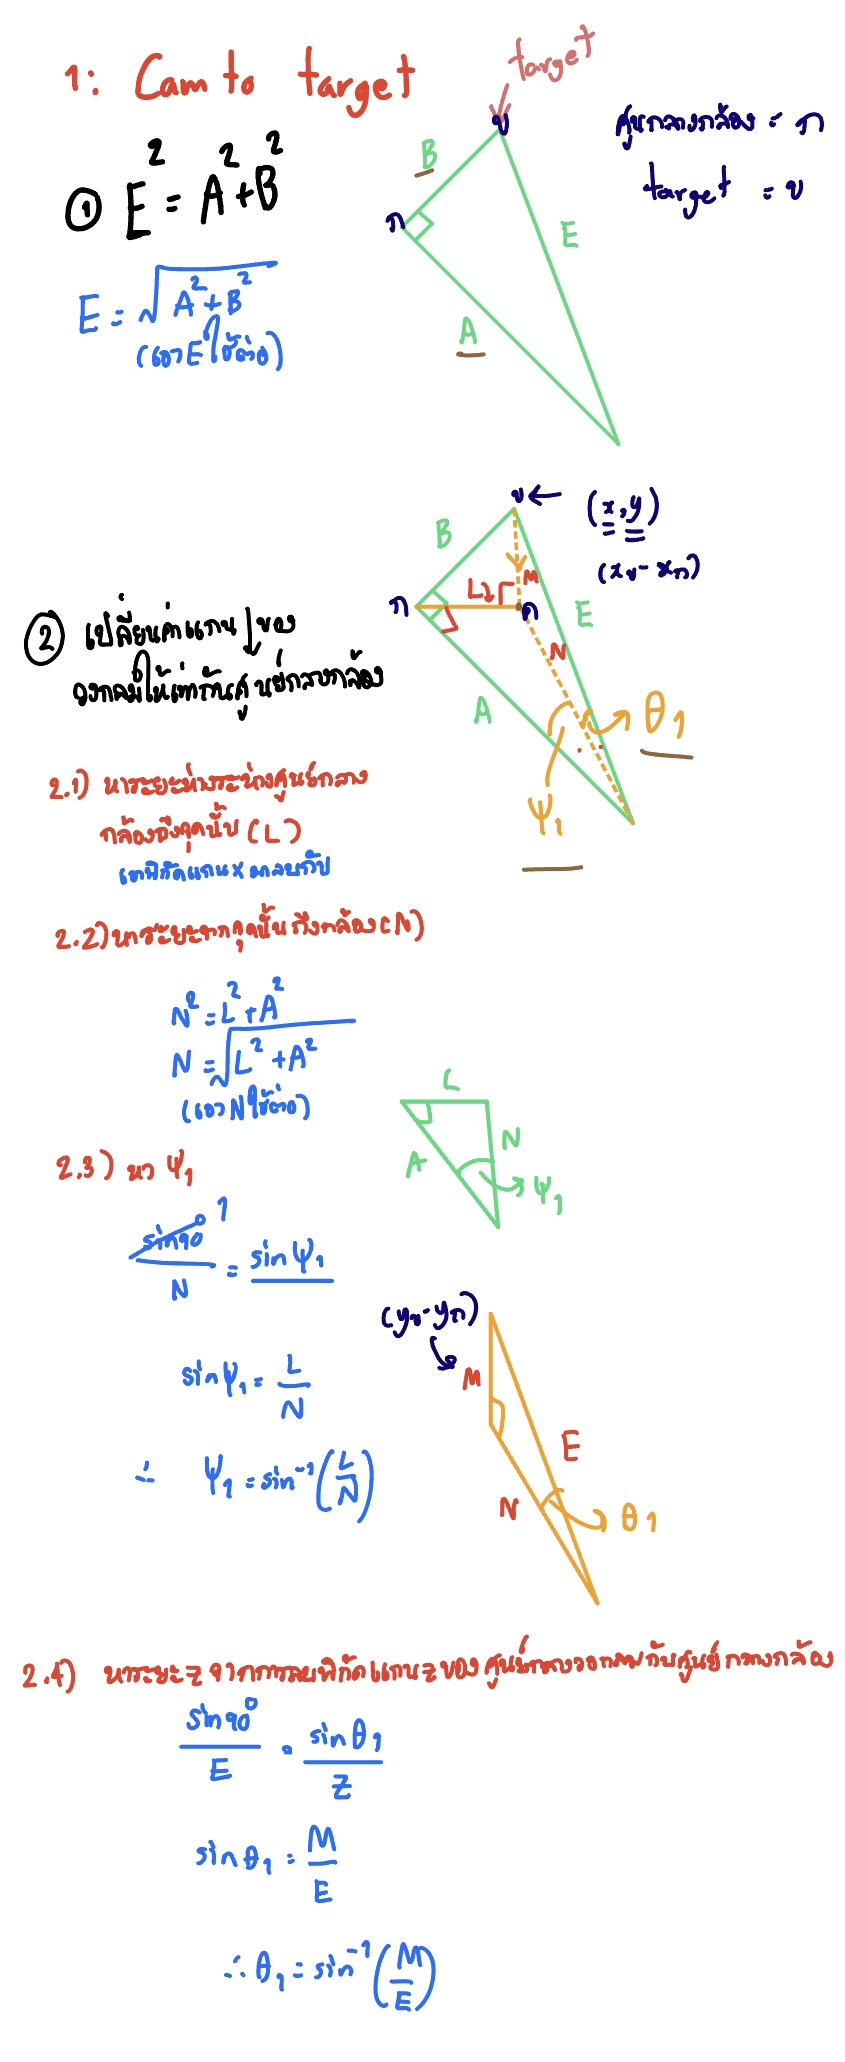 1: Cam to target
target
ศูนกลางกล้อง = ก
target = ข
① E² = A² + B²
E = √A² + B²
(เอา E ใช้ต่อ)
ข
B
ก
E
A
ข ← (x, y)
(xข - xก)
B
M
L
ก
ค
E
N
A
θ₁
Ψ₁
② เปลี่ยนค่าแกน y ของ
วงกลมให้เท่ากับศูนย์กลางกล้อง
2.1) หาระยะห่างระหว่างศูนย์กลาง
กล้องถึงจุดนั้น (L)
เอาพิกัดแกน x มาลบกัน
2.2) หาระยะจากจุดนั้นถึงกล้อง (N)
N² = L² + A²
N = √L² + A²
(เอา N ใช้ต่อ)
L
N
A
Ψ₁
2.3) หา Ψ₁
sin90° 1
N = sin Ψ₁
sin Ψ₁ = L/N
∴ Ψ₁ = sin⁻¹(L/N)
(yข - yก)
M
E
N
θ₁
2.4) หาระยะ z จากการลบพิกัดแกน z ของศูนย์กลางวงกลมกับศูนย์กลางกล้อง
sin90°/E = sin θ₁/Z
sin θ₁ = M/E
∴ θ₁ = sin⁻¹(M/E)